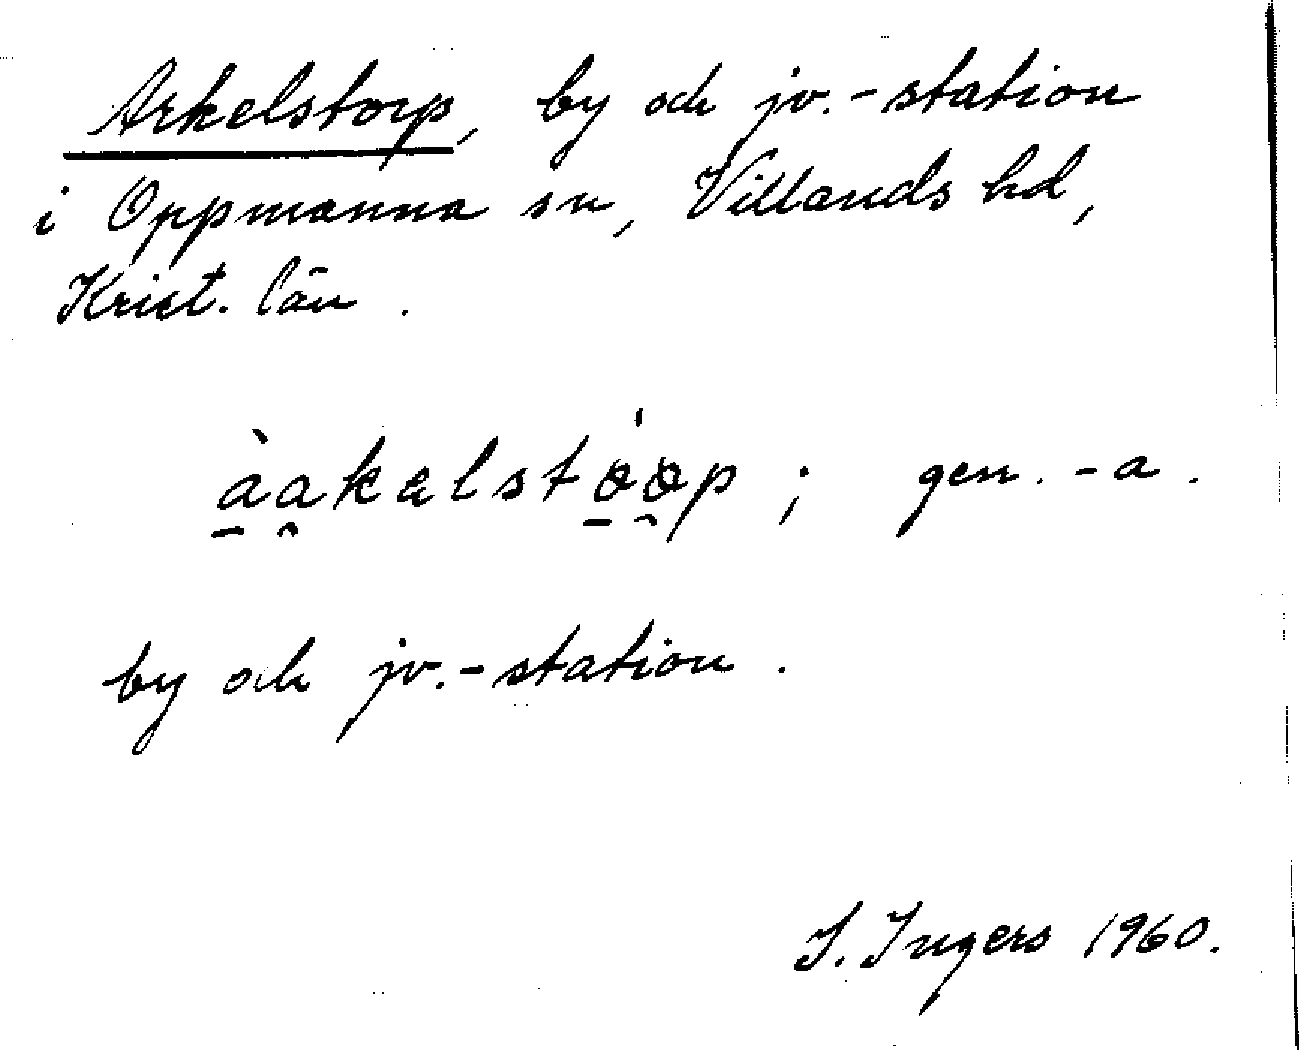 Arkelstorp, by och jv.-station
i Oppmanna sn, Villands hd,
Krist. län.
àakəlstȯ́ȯp ; gen. -a.
by och jv.-station.
I. Ingers 1960.